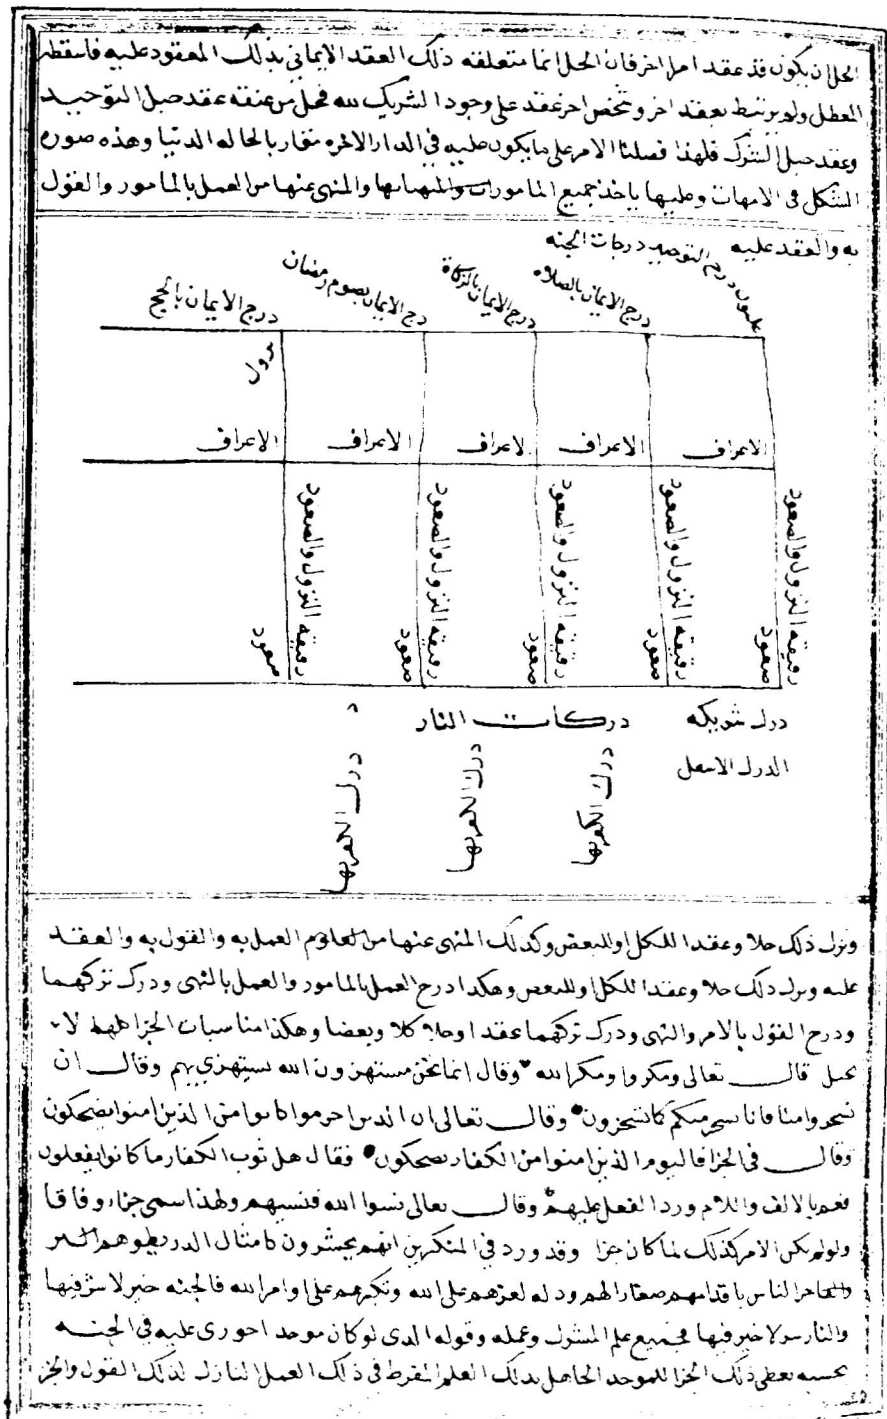 الحل ان يكون قد عقد امرا اخر فان الحل انما متعلقه ذلك العقد الايماني بذلك المعقود عليه فاسقطه
المعطل ولم يرتبط بعقد اخر وشخص اخر عقد على وجود الشريك لله فحل من عنقه عقد حبل التوحيد
وعقد حبل الشرك فلهذا فصلنا الامر على ما يكون عليه في الدار الاخره مقار بالحاله الدنيا وهذه صورة
الشكل في الامهات وعليها ياخذ جميع المامورات والمنهيات والمنهى عنها من العمل بالمامور والقول
به والعقد عليه
درجات الجنه
عليون درج التوحيد
درج الايمان بالصلاه
درج الايمان بالزكاة
درج الايمان بصوم رمضان
درج الايمان بالحج
نزول
الاعراف الاعراف لاعراف الاعراف الاعراف
رقيقه النزول والصعود
رقيقه النزول والصعود
رقيقه النزول والصعود
رقيقه النزول والصعود
رقيقه النزول والصعود
صعود صعود صعود صعود صعود
درك شريكه دركات النار
الدرك الاسفل
درك الكفر بها
درك الكفر بها
درك الكفر بها
وترك ذلك حلا وعقدا للكل او للبعض وكذلك المنهى عنها من العلوم العمل به والقول به والعقد
عليه وترك ذلك حلا وعقدا للكل او للبعض وهكذا درج العمل بالمامور والعمل بالنهى ودرك تركهما
ودرج القول بالامر والنهى ودرك تركهما عقدا وحلا كلا وبعضا وهكذا مناسبات الجزا كلها لا
يخل قال تعالى ومكروا ومكر الله وقال انما نحن مستهزون الله يستهزي بهم وقال ان
تسخروا منا فانا نسخر منكم كما تسخرون وقال تعالى ان الذين اجرموا كانوا من الذين امنوا يضحكون
وقال في الجزا فاليوم الذين امنوا من الكفار يضحكون فقال هل ثوب الكفار ما كانوا يفعلون
فعم بالالف واللام ورد الفعل عليهم وقال تعالى نسوا الله فنسيهم ولهذا سمى جزاء وفاقا
ولو لم يكن الامر كذلك لما كان جزا وقد ورد في المتكبرين انهم يحشرون كامثال الذر يطوهم
الناس باقدامهم صغارا لهم وذله لعزهم على الله وتكبرهم على اوامر الله فالجنه خير لا شر فيها
والنار شر لا خير فيها فجميع علم المشرك وعمله وقوله الذى لو كان موحدا جوزى عليه في الجنه
بحسبه يعطى ذلك الجزا للموحد الجاهل بذلك العلم المفرط في ذلك العمل التارك لذلك القول والجز